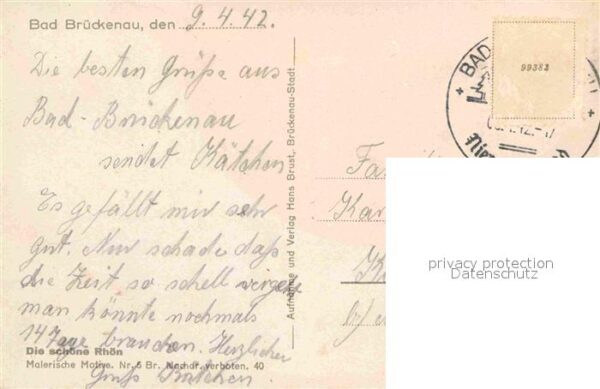 Bad Brückenau, den 9.4.42.
Die besten Grüße aus
Bad-Brückenau
sendet Kätchen
Es gefällt mir sehr
gut. Nur schade daß
die Zeit so schell
man könnte nochmals
14 Tage brauchen. Herzlichen
Gruß Kätchen.
Die schöne Rhön
Malerische Motive. Nr. 5 Br. Nachdr. verboten. 40
Aufnahme und Verlag Hans Brust, Brückenau-Stadt
BAD
99382
privacy protection
Datenschutz